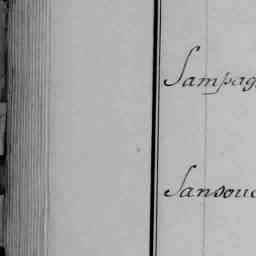 Sampag
Sansouc